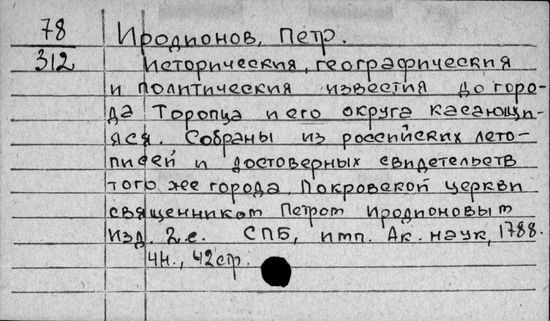 78 Иродионов, Петр.
312 Историческия, географическия
и политическия известия до горо-
да Торопца и его округа касающи-
яся. Собраны из российских лето-
писей и достоверных свидетельств
того же города Покровской церкви
священником Петром Иродионовым
Изд. 2.е. СПБ, имп. Ак. наук, 1788.
4н., 42стр.